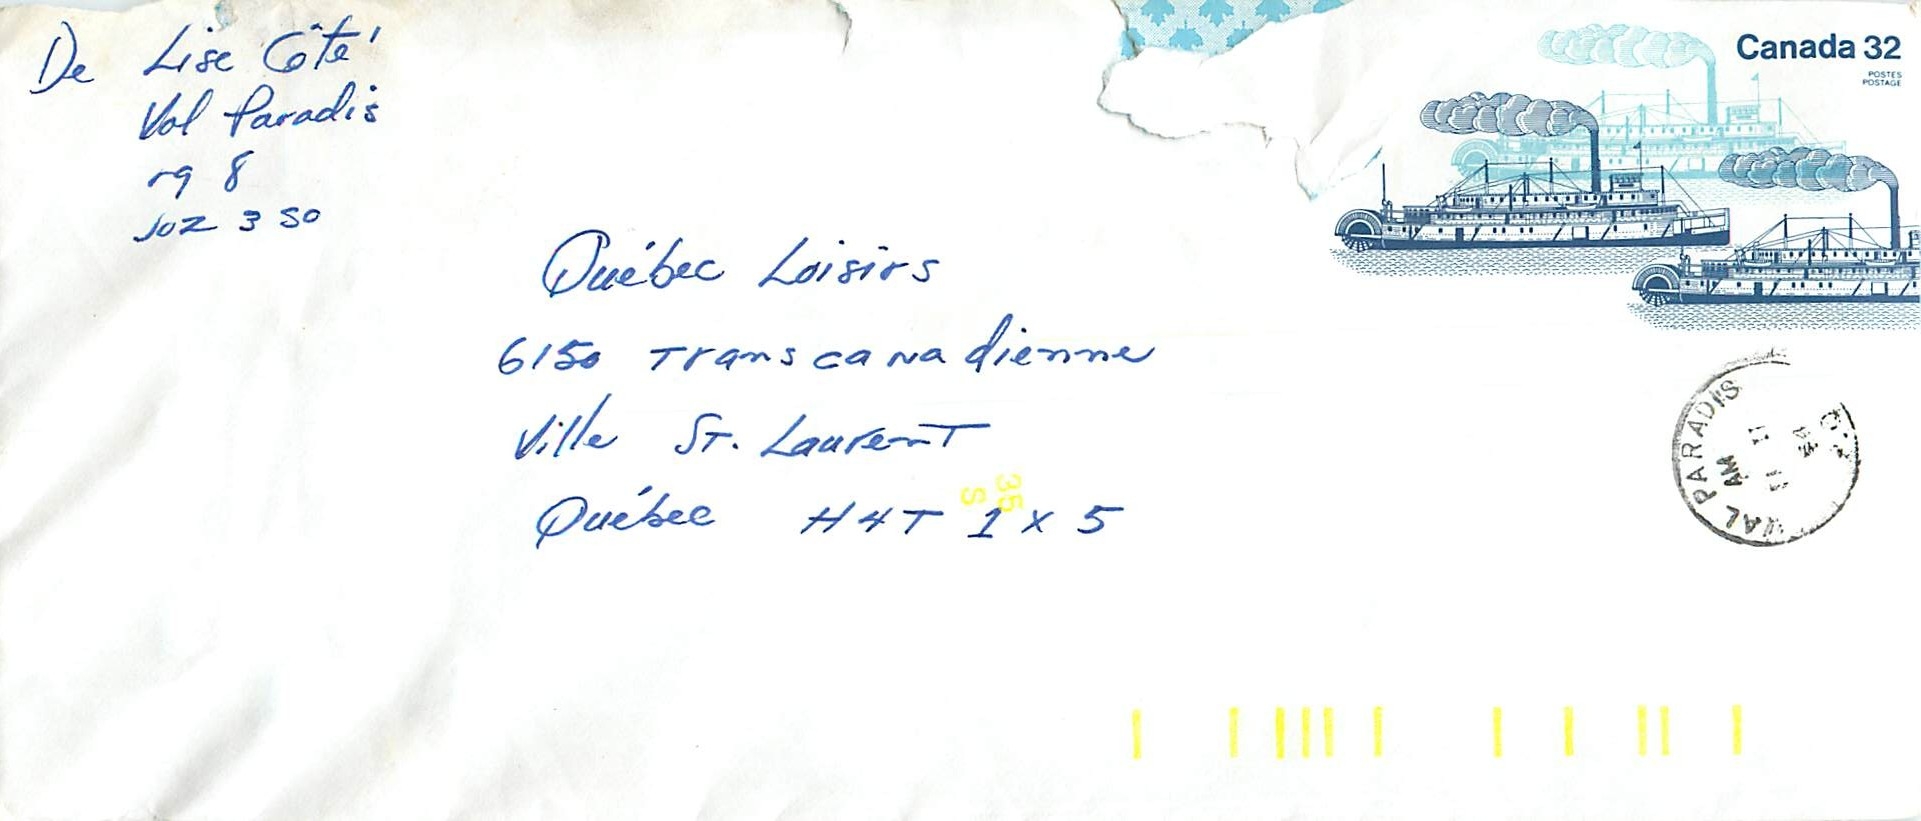 De Lise Côté
Val Paradis
rg 8
J0Z 3S0
Canada 32
POSTES
POSTAGE
Québec Loisirs
6150 Transcanadienne
Ville St. Laurent
Québec H4T 1X5
35
S
VAL PARADIS
AM
11